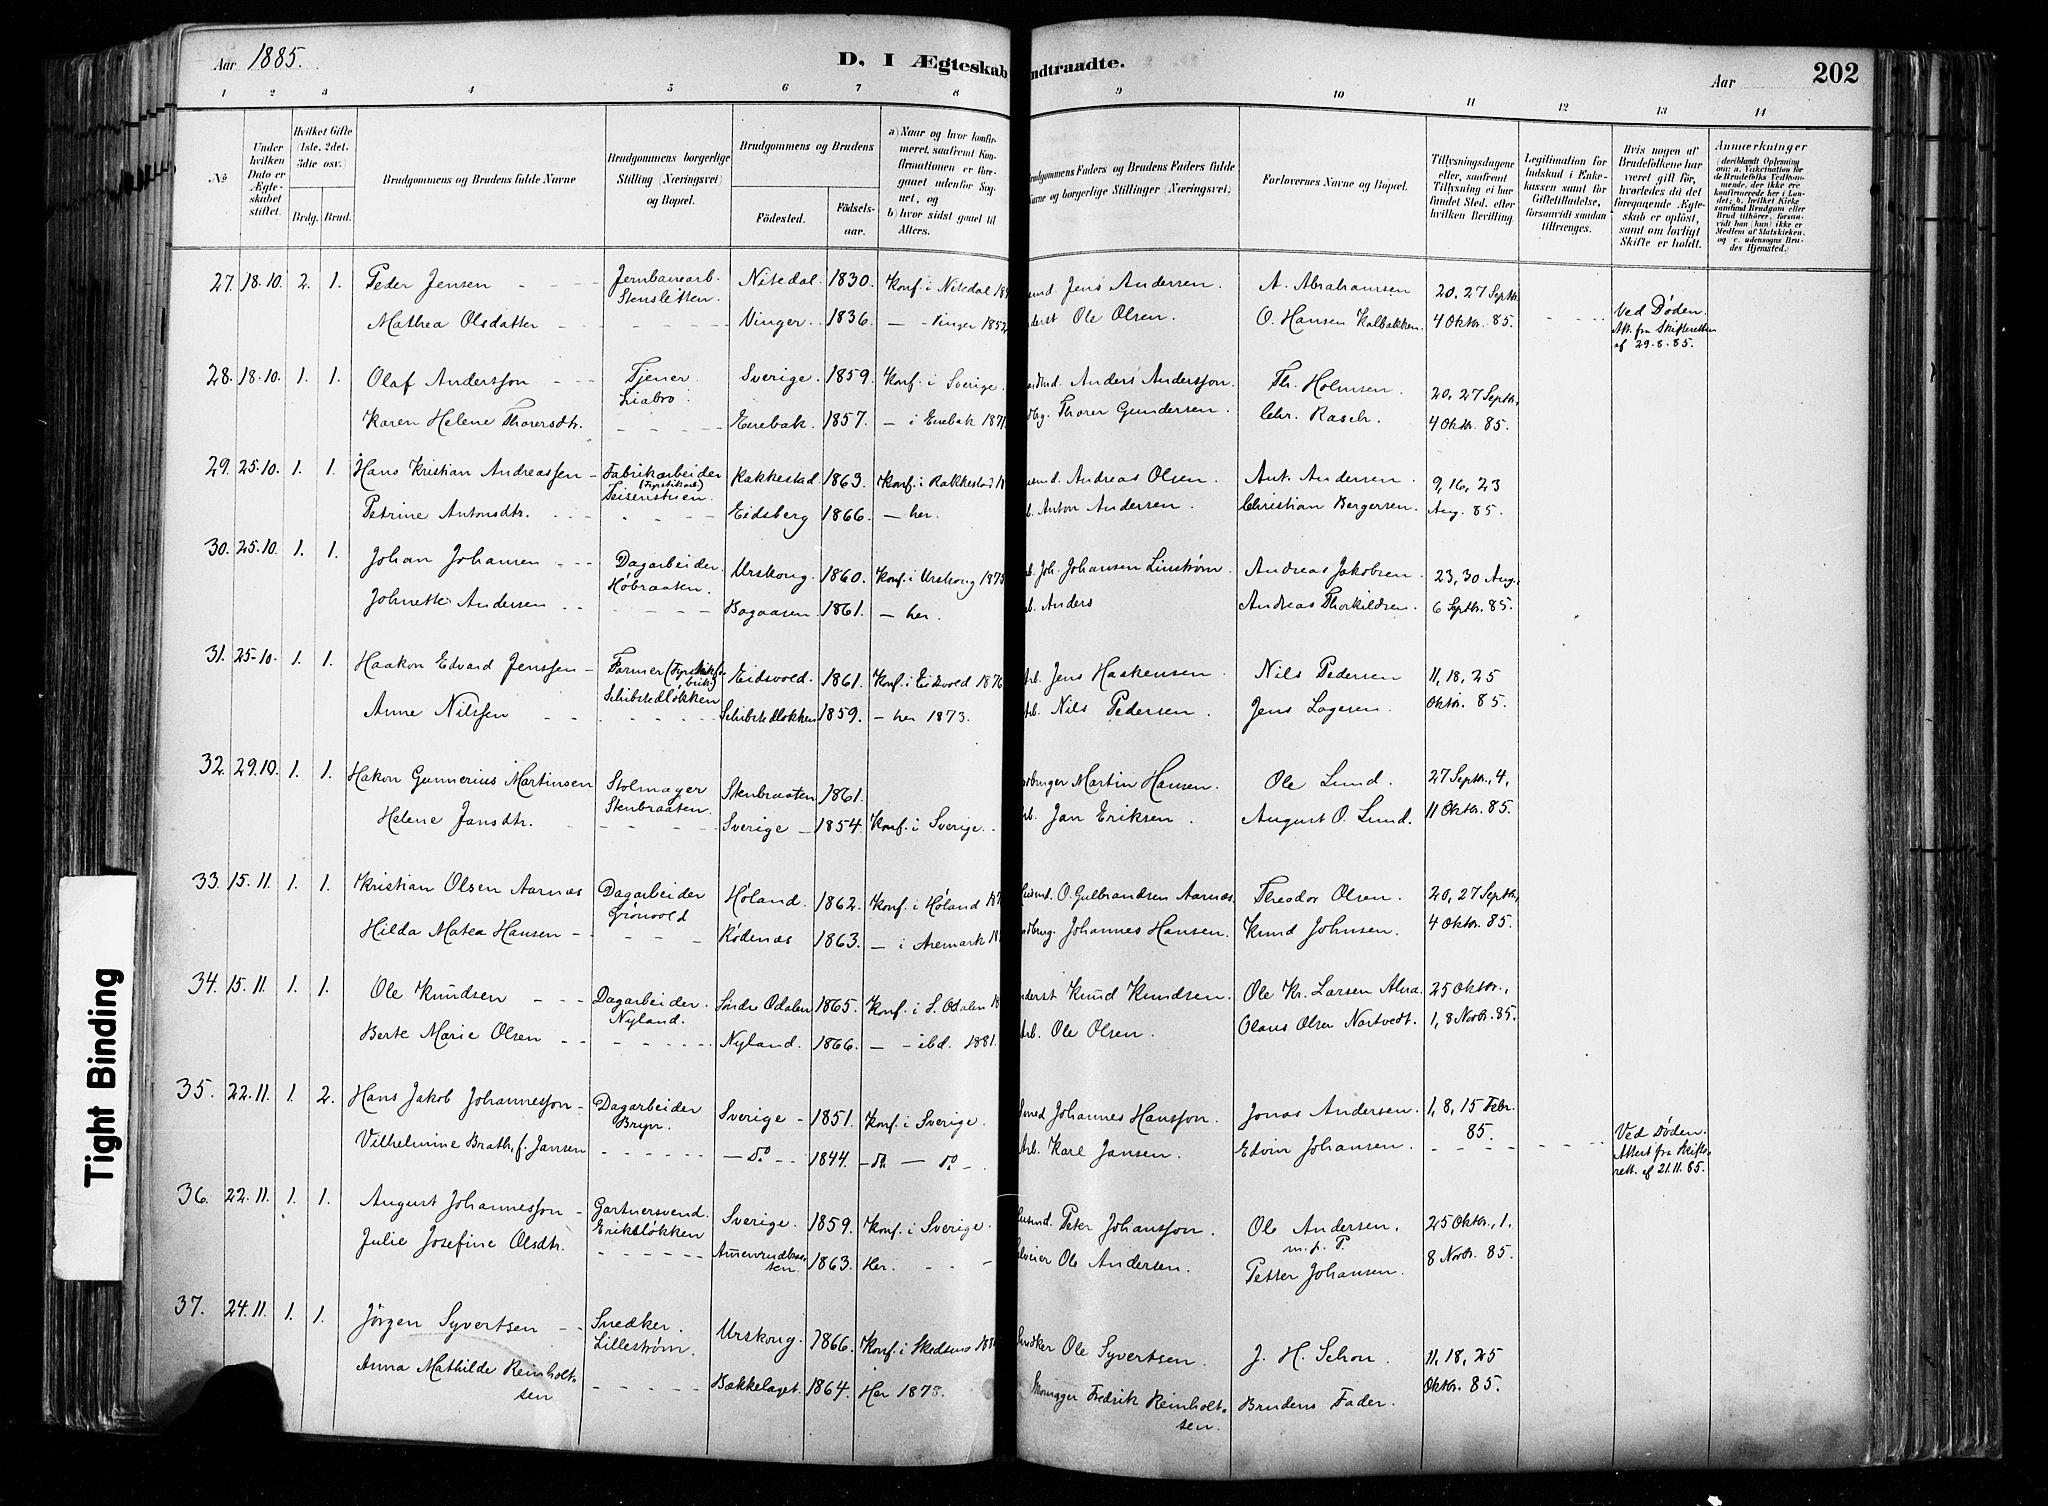 Aar 1885.
D. I Ægteskab indtraadte.
Aar
202
1 2 3 4 5 6 7 8 9 10 11 12 13 14
№
Under hvilken Dato er Ægteskabet stiftet.
Hvilket Gifte (1ste, 2det, 3die osv.)
Brdg. Brud.
Brudgommens og Brudens fulde Navne
Brudgommens borgerlige Stilling (Næringsvei) og Bopæl.
Brudgommens og Brudens
Fødested. Fødselsaar.
a) Naar og hvor konfirmeret, saafremt Konfirmationen er foregaaet udenfor Sognet, og
b) hvor sidst gaaet til Alters.
Brudgommens Faders og Brudens Faders fulde Navne og borgerlige Stillinger (Næringsvei).
Forlovernes Navne og Bopæl.
Tillysningsdagene eller, saafremt Tillysning ei har fundet Sted, efter hvilken Bevilling.
Legitimation for Indskud i Enkekassen samt for Giftetilladelse, forsaavidt saadan tiltrænges.
Hvis nogen af Brudefolkene har været gift før, hvorledes da det foregaaende Ægteskab er opløst, samt om lovligt Skifte er holdt.
Anmerkninger
27. 18.10. 2. 1. Peder Jensen Jernbanearb. Stensletten. Nitedal 1830. Konf. i Nitedal Jens Andersen. A. Abrahamsen 20, 27 Septbr.
Mathea Olsdatter Vinger 1836. — Vinger 1852 Ole Olsen. O. Hansen Kalbakken 4 Oktbr. 85. Ved Døden. Att. fra Skifteretten af 29.8.85.
28. 18.10. 1. 1. Olaf Andersson Tjener. Liabro. Sverige. 1859. Konf. i Sverige. Anders Andersson. Th. Holmsen. 20, 27 Septbr.
Karen Helene Thorersdtr. Enebak. 1857. — i Enebak 1871 Thorer Gundersen. Chr. Rasch. 4 Oktbr. 85.
29. 25.10. 1. 1. Hans Kristian Andreassen Fabrikarbeider Teisenstuen. Rakkestad 1863. Konf. i Rakkestad Andreas Olsen. Ant. Andersen. 9, 16, 23
Petrine Antonsdtr. Eidsberg 1866. — her. Anton Andersen. Christian Bergersen. Aug. 85.
30. 25.10. 1. 1. Johan Johansen Dagarbeider. Høbraaten. Urskoug. 1860. Konf. i Urskoug 1875 Joh. Johansen Linstrøm. Andreas Jakobsen. 23, 30 Aug.
Johnette Andersen Bogaasen 1861. — her. Anders Andreas Thorkildsen. 6 Septbr. 85.
31. 25.10. 1. 1. Haakon Edvard Jenssen Farmer (Fyrstikfabrik) Schibstedløkken Eidsvold. 1861. Konf. i Eidsvold 1876 Arb. Jens Haakensen. Nils Pedersen 11, 18, 25
Anne Nilssen Schibstedløkken 1859. — her 1873. Arb. Nils Pedersen. Jens Lagesen. Oktbr. 85.
32. 29.10. 1. 1. Hakon Gunnerius Martinsen Stolmager Stenbraaten. Stenbraaten 1861. Martin Hansen. Ole Lund. 27 Septbr., 4,
Helene Jansdtr. Sverige 1854 Konf. i Sverige. Jan Eriksen. August O. Lund. 11 Oktbr. 85.
33. 15.11. 1. 1. Kristian Olsen Aarnæs Dagarbeider Grönvold Høland. 1862. Konf. i Høland Husmd. O. Gulbrandsen Aarnæs. Theodor Olsen. 20, 27 Septbr.,
Hilda Matea Hansen Rødenæs 1863. — i Aremark Johannes Hansen. Knud Johnsen. 4 Oktbr. 85.
34. 15.11. 1. 1. Ole Knudsen Dagarbeider. Nyland. Søndre Odalen 1865. Konf. i S. Odalen Knud Knudsen. Ole Kr. Larsen 25 Oktbr.,
Berte Marie Olsen Nyland. 1866. — ibd. 1881. Arb. Ole Olsen. Olaus Olsen Nortvedt. 1, 8 Novbr. 85.
35. 22.11. 1. 2. Hans Jakob Johannesson Dagarbeider Bryn. Sverige 1851. Konf. i Sverige. Smed Johannes Hansson. Jonas Andersen. 1, 8, 15 Febr. 85.
Vilhelmine Brath, f. Jansen — Dº 1844. — dº — dº Arb. Karl Jansen. Edvin Johansen. Ved Døden. Attest fra Skifterett. af 21.11.85.
36. 22.11. 1. 1. August Johannesson Gartnersvend. Eriksløkken Sverige. 1859. Konf. i Sverige. Husmd. Peter Johansson. Ole Andersen. m. p. P. 25 Oktbr., 1.
Julie Josefine Olsdtr. 1863. Her. Ole Andersen. Petter Johansen. 8 Novbr. 85.
37. 24.11. 1. 1. Jörgen Syvertsen Snedker. Lillestrøm. Urskoug. 1866. Konf. i Skedsmo Snedker Ole Syvertsen. J. H. Schou. 11, 18, 25
Anna Mathilde Reinholtsen Bækkelaget. 1864. Her 1878. Fredrik Reinholtsen. Brudens Fader. Oktbr. 85.
Tight Binding